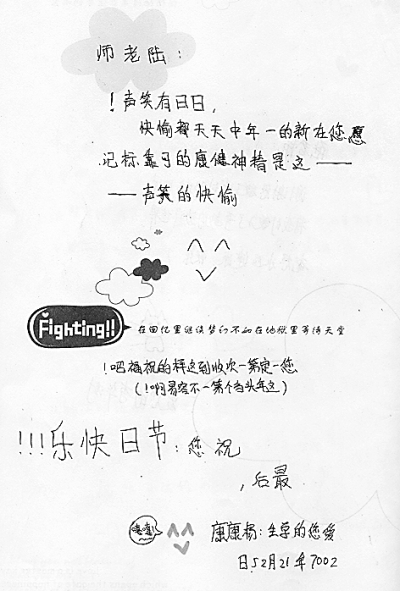 师老陆：
！声笑有日日，
快愉都天天中年一的新在您愿
记标靠可的康健神精是这——
——声笑的快愉
Fighting!! 在回忆里继续梦幻不如在地狱里等待天堂
！吧福祝的样这到收次一第定一您
（！啊易容不一第个当头年这）
!!!乐快日节：您祝
，后最
嘻嘻 康康杨：生学的您爱
日52月21年7002